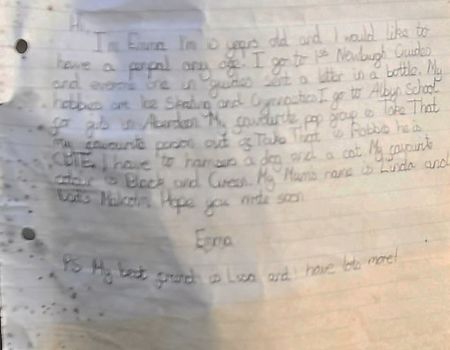 Hi,
I'm Emma I'm 10 years old and I would like to
have a penpal any age. I go to 1st Newburgh Guides
and everyone in guides sent a letter in a bottle. My
hobbies are Ice Skating and Gymnastics I go to Albyn School
for girls in Aberdeen. My favourite pop group is Take That
my favourite person out of Take That is Robbie he is
CUTE. I have to hamsters a dog and a cat. My favourite
colour is Black and Green. My Mums name is Linda and
Malcolm. Hope you write soon
Emma
PS My best friend is Lisa and I have lots more!